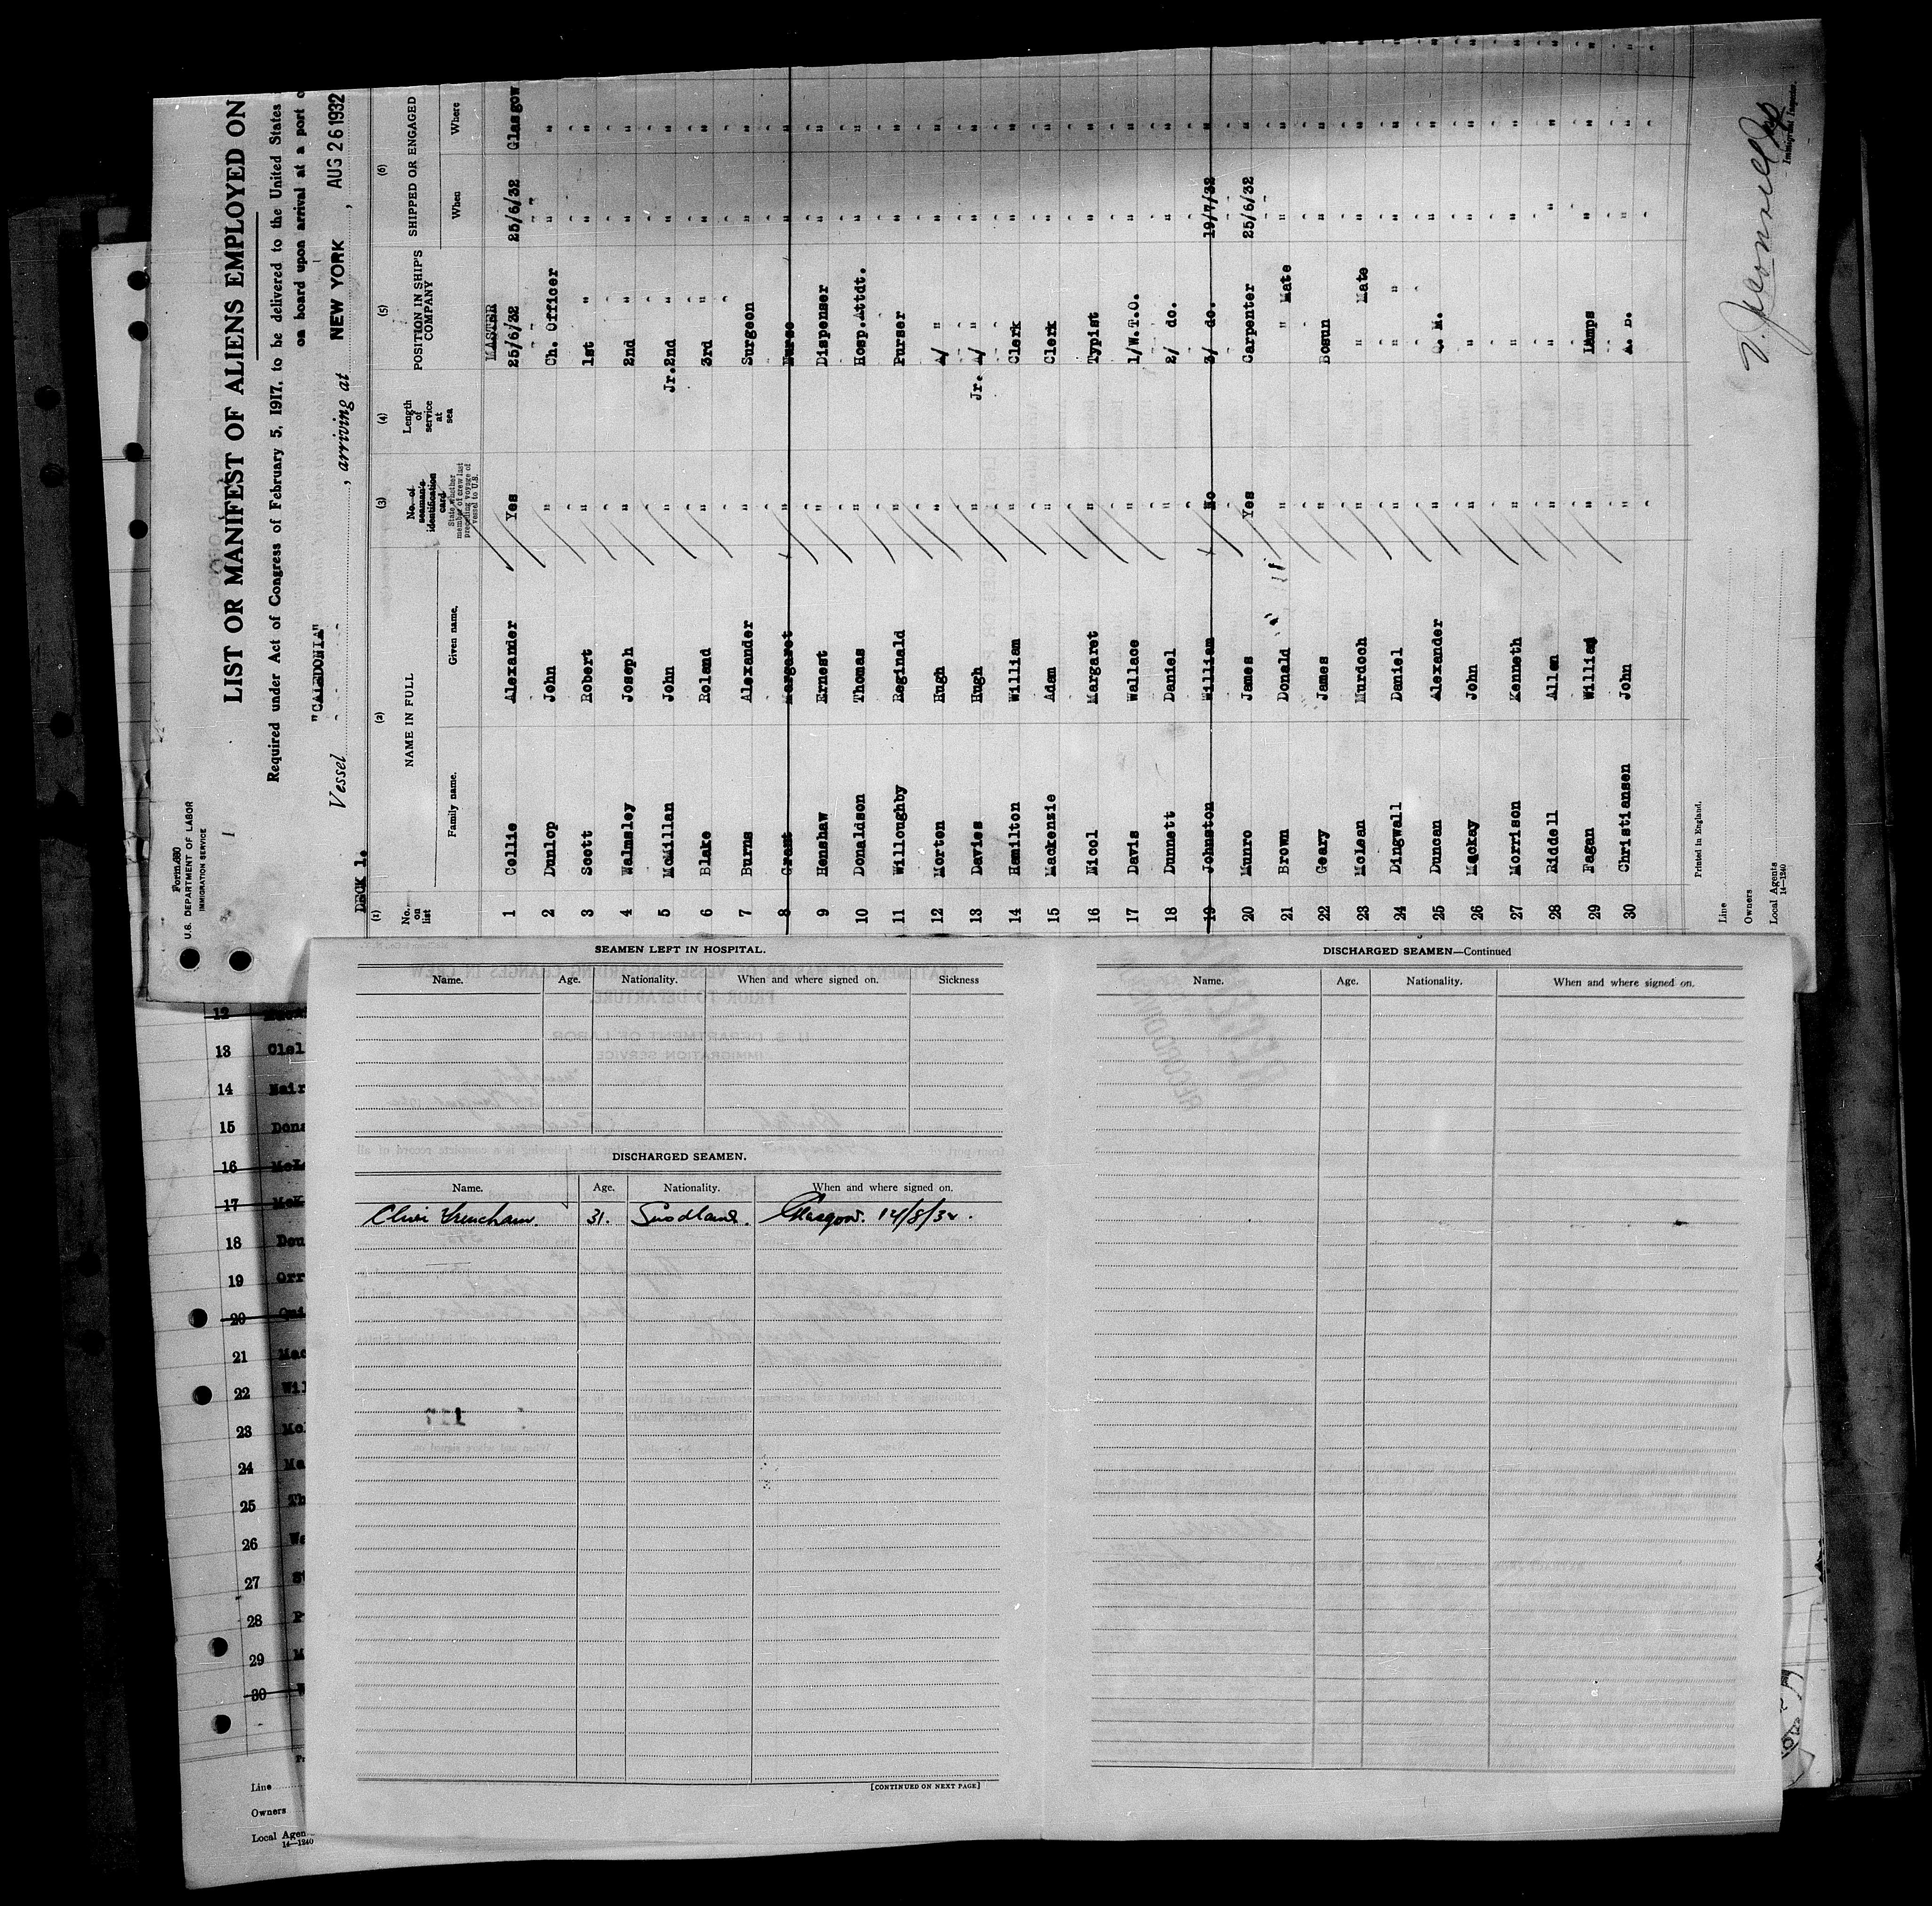 Form 680
U.S. DEPARTMENT OF LABOR
IMMIGRATION SERVICE
LIST OR MANIFEST OF ALIENS EMPLOYED ON
Required under Act of Congress of February 5, 1917, to be delivered to the United States
on board upon arrival at a port
"CALEDONIA"
Vessel , arriving at NEW YORK , AUG 26 1932
DECK 1.
(1) (2) (3) (4) (5) (6)
No. on list NAME IN FULL No. of seaman's identification card Length of service at sea POSITION IN SHIP'S COMPANY SHIPPED OR ENGAGED
Family name. Given name. State whether member of crew last preceding voyage of vessel to U.S. When Where
MASTER
1 Collie Alexander Yes 25/6/32 25/6/32 Glasgow
2 Dunlop John " Ch. Officer " "
3 Scott Robert " 1st " " "
4 Walmsley Joseph " 2nd " " "
5 McMillan John " Jr.2nd " " "
6 Blake Roland " 3rd " " "
7 Burns Alexander " Surgeon " "
8 Grant Margaret " Nurse " "
9 Henshaw Ernest " Dispenser " "
10 Donaldson Thomas " Hosp.Attdt. " "
11 Willoughby Reginald " Purser " "
12 Morton Hugh " A/ " " "
13 Davies Hugh " Jr. A/ " " "
14 Hamilton William " Clerk " "
15 Mackenzie Adam " Clerk " "
16 Nicol Margaret " Typist " "
17 Davis Wallace " 1/W.T.O. " "
18 Dunnett Daniel " 2/ do. " "
19 Johnston William No 3/ do. 19/7/32 "
20 Munro James Yes Carpenter 25/6/32 "
21 Brown Donald " " Mate " "
22 Geary James " Bosun " "
23 McLean Murdoch " " Mate " "
24 Dingwall Daniel " " " " "
25 Duncan Alexander " Q. M. " "
26 Mackay John " " " "
27 Morrison Kenneth " " " "
28 Riddell Allan " " " "
29 Fagan William " Lamps " "
30 Christiansen John " A. B. " "
Printed in England.
Line
Owners
Local Agents
14—1240
Immigrant Inspector.
12
13 Clel
14 Nair
15 Dona
16 McL
17 McK
18 Dou
19 Orr
20
21 Mac
22 Wil
23 Mc
24 Ma
25 Th
26 Wa
27
28
29 M
30
Line
Owners
Local Agen
14—1240
SEAMEN LEFT IN HOSPITAL.
Name. Age. Nationality. When and where signed on. Sickness
DISCHARGED SEAMEN.
Name. Age. Nationality. When and where signed on.
31. Glasgow. 14/8/32.
[CONTINUED ON NEXT PAGE]
DISCHARGED SEAMEN—Continued
Name. Age. Nationality. When and where signed on.